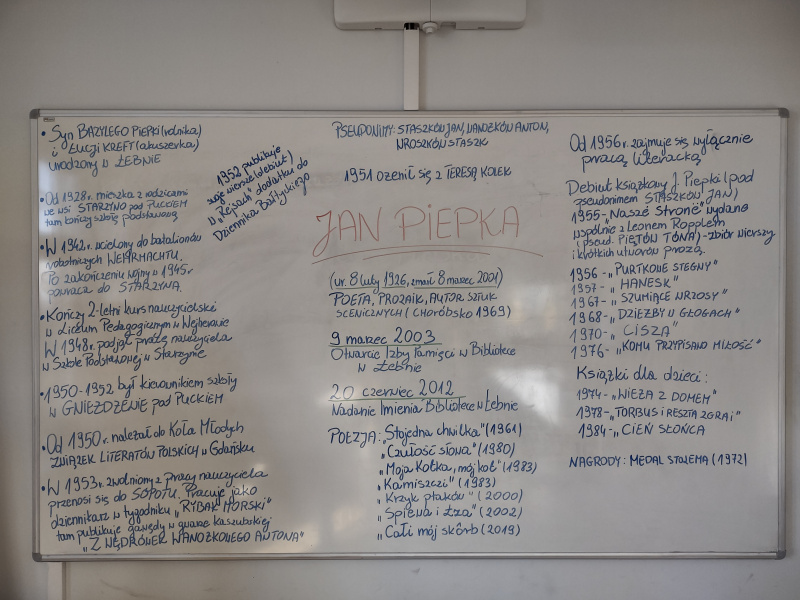 • Syn BAZYLEGO PIEPKI (rolnika)
i ŁUCJI KREFT (akuszerka)
urodzony w ŁEBNIE
• Od 1928r. mieszka z rodzicami
we wsi STARZYNO pod PUCKIEM
tam kończy szkołę podstawową
• W 1942r. wcielony do batalionów
robotniczych WEHRMACHTU.
Po zakończeniu wojny w 1945r.
powraca do STARZYNA.
• Kończy 2-letni kurs nauczycielski
w Liceum Pedagogicznym w Wejherowie
W 1948r. podjął pracę nauczyciela
w Szkole Podstawowej w Starzynie
• 1950-1952 był kierownikiem szkoły
w GNIEŻDŻENIE pod PUCKIEM
• Od 1950r. należał do Koła Młodych
ZWIĄZEK LITERATÓW POLSKICH w Gdańsku
• W 1953r. zwolniony z pracy nauczyciela
przenosi się do SOPOTU. Pracuje jako
dziennikarz w tygodniku „RYBAK MORSKI"
tam publikuje gawędy w gwarze kaszubskiej
„Z WĘDRÓWEK WANOŻKOWEGO ANTONA"
1952 publikuje
swoje wiersze (debiut)
w „Rejsach" dodatku do
Dziennika Bałtyckiego
PSEUDONIMY: STASZKÓW JAN, WANOŻKÓW ANTON,
WROSZKÓW STASZK
1951 ożenił się z TERESĄ KOŁEK
JAN PIEPKA
(ur. 8 luty 1926, zmarł 8 marzec 2001)
POETA, PROZAIK, AUTOR SZTUK
SCENICZNYCH (CHORÓBSKO 1969)
9 marzec 2003
Otwarcie Izby Pamięci w Bibliotece
w Łebnie
20 czerwiec 2012
Nadanie Imienia Bibliotece w Łebnie
POEZJA: „Stojedna chwilka" (1961)
„Czułość słowa" (1980)
„Moja Kotka, mój kot" (1983)
„Kamiszczi" (1983)
„Krzyk ptaków" (2000)
„Spiewa i łza" (2002)
„Cali mój skôrb (2019)
Od 1956r. zajmuje się wyłącznie
pracą literacką
Debiut książkowy J. Piepki (pod
pseudonimem STASZKÓW JAN)
1955 - „Nasze Stronë" wydane
wspólnie z Leonem Ropplem
(pseud. PIĘTÓW TÓNA) - zbiór wierszy
i krótkich utworów prozą.
1956 - „PURTKOWE STEGNY"
1957 - „HANESK"
1967 - „SZUMIĄCE WRZOSY"
1968 - „DZIEŻBY W GŁOGACH"
1970 - „CISZA"
1976 - „KOMU PRZYPISANO MIŁOŚĆ"
Książki dla dzieci:
1974 - „WIEŻA Z DOMEM"
1978 - „TORBUS I RESZTA ZGRAI"
1984 - „CIEŃ SŁOŃCA
NAGRODY: MEDAL STOLEMA (1972)